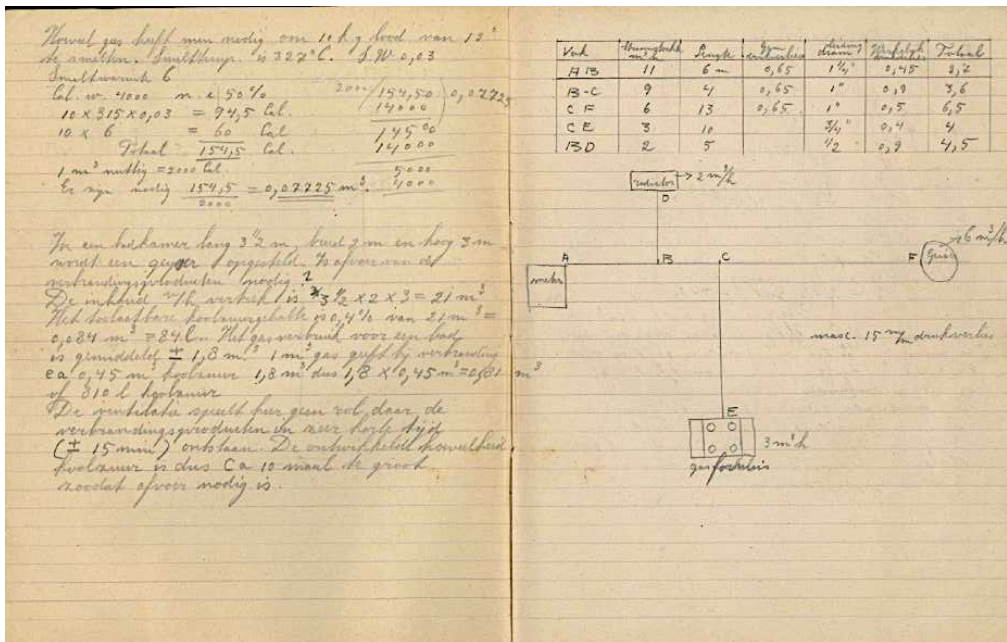 Hoeveel gas heeft men nodig om 10 kg lood van 12°
te smelten. Smelttemp. is 327°C. S.W 0,03
Smeltwarmte 6
Cal. w. 4000 n. e 50%
10 x 315 x 0,03 = 94,5 Cal.
10 x 6 = 60 Cal
Totaal 154,5 Cal.
1 m³ nuttig = 2000 Cal.
Er zijn nodig 154,5 / 2000 = 0,07725 m³.
2000 / 154,50 \ 0,07725
14000
14500
14000
5000
4000
In een badkamer lang 3 1/2 m, breed 2 m en hoog 3 m
wordt een geyser opgesteld. Is afvoer van de
verbrandingsproducten nodig?
De inhoud v/h vertrek is 3 1/2 x 2 x 3 = 21 m³
Het toelaatbare koolzuurgehalte is 0,4% van 21 m³ =
0,084 m³ = 84 l. Het gasverbruik voor een bad
is gemiddeld ± 1,8 m³ 1 m³ gas geeft bij verbranding
ca 0,45 m³ koolzuur 1,8 m³ dus 1,8 x 0,45 m³ = 0,81 m³
of 810 l koolzuur
De ventilatie speelt hier geen rol, daar de
verbrandingsproducten in zeer korte tijd
(± 15 min) ontstaan. De ontwikkelde hoeveelheid
koolzuur is dus ca 10 maal te groot
zoodat afvoer nodig is.
Vak m³/h Lengte leiding diam. Werkelijk Totaal
AB 11 6 m 0,65 1 1/4" 0,45 2,7
B-C 9 4 0,65 1" 0,9 3,6
CF 6 13 0,65 1" 0,5 6,5
CE 3 10 3/4" 0,4 4
BD 2 5 1/2 0,9 4,5
radiator → 2 m³/h
D
A B C F
6 m³/h
meter
max. 15 m/m drukverlies
E
3 m³h
gasfornuis